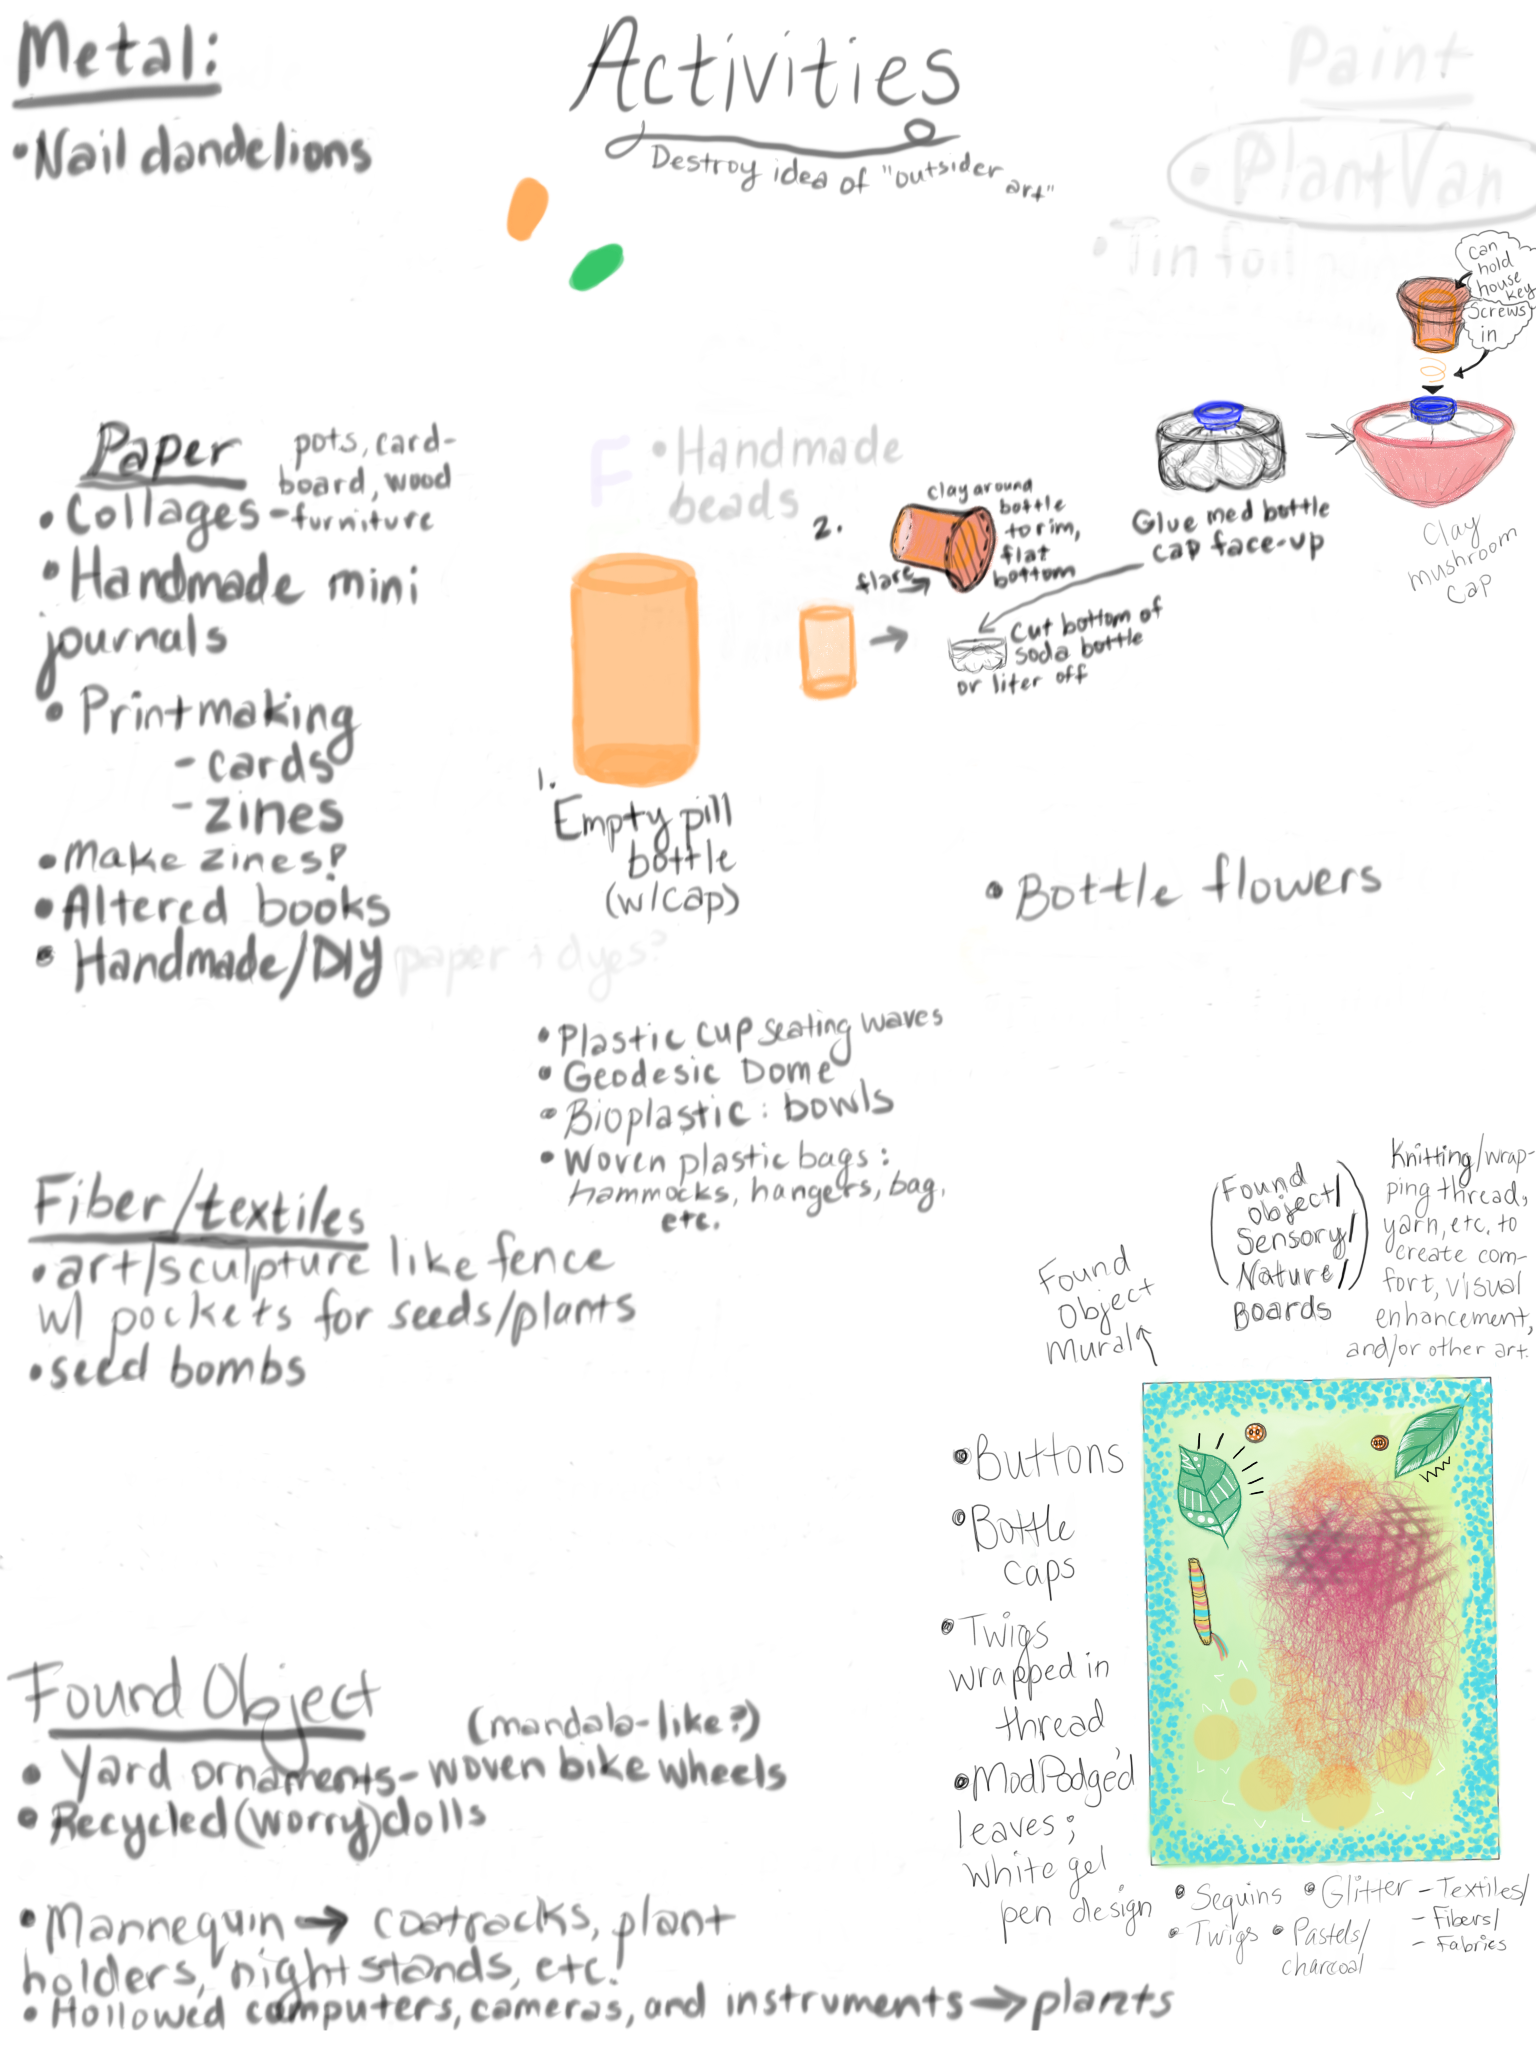 Metal:
• Nail dandelions
Activities
Destroy idea of "outsider art"
Paint
• PlantVan
• Tin foil
can
hold
house
key
Screws
in
Paper
pots, card-
board, wood
• Collages - furniture
• Handmade mini
journals
• Printmaking
- cards
- zines
• Make zines?
• Altered books
• Handmade/DIY paper + dyes?
F
• Handmade
beads
1.
Empty pill
bottle
(w/cap)
2.
clay around
bottle
to rim,
flat
bottom
flare
Cut bottom of
soda bottle
or liter off
Glue med bottle
cap face-up
Clay
mushroom
cap
• Bottle flowers
• Plastic cup seating waves
• Geodesic Dome
• Bioplastic: bowls
• Woven plastic bags:
hammocks, hangers, bag,
etc.
Fiber/textiles
• art/sculpture like fence
w/ pockets for seeds/plants
• seed bombs
Found
Object
Mural
(Found
Object/
Sensory/
Nature/)
Boards
Knitting/wrap-
ping thread,
yarn, etc. to
create com-
fort, visual
enhancement,
and/or other art.
• Buttons
• Bottle
caps
• Twigs
wrapped in
thread
• ModPodge'd
leaves;
white gel
pen design
• Sequins
• Glitter
- Textiles/
• Twigs
• Pastels/
charcoal
- Fibers/
- Fabrics
Found Object
(mandala-like?)
• Yard ornaments - woven bike wheels
• Recycled (worry) dolls
• Mannequin → coatracks, plant
holders, night stands, etc!
• Hollowed computers, cameras, and instruments → plants